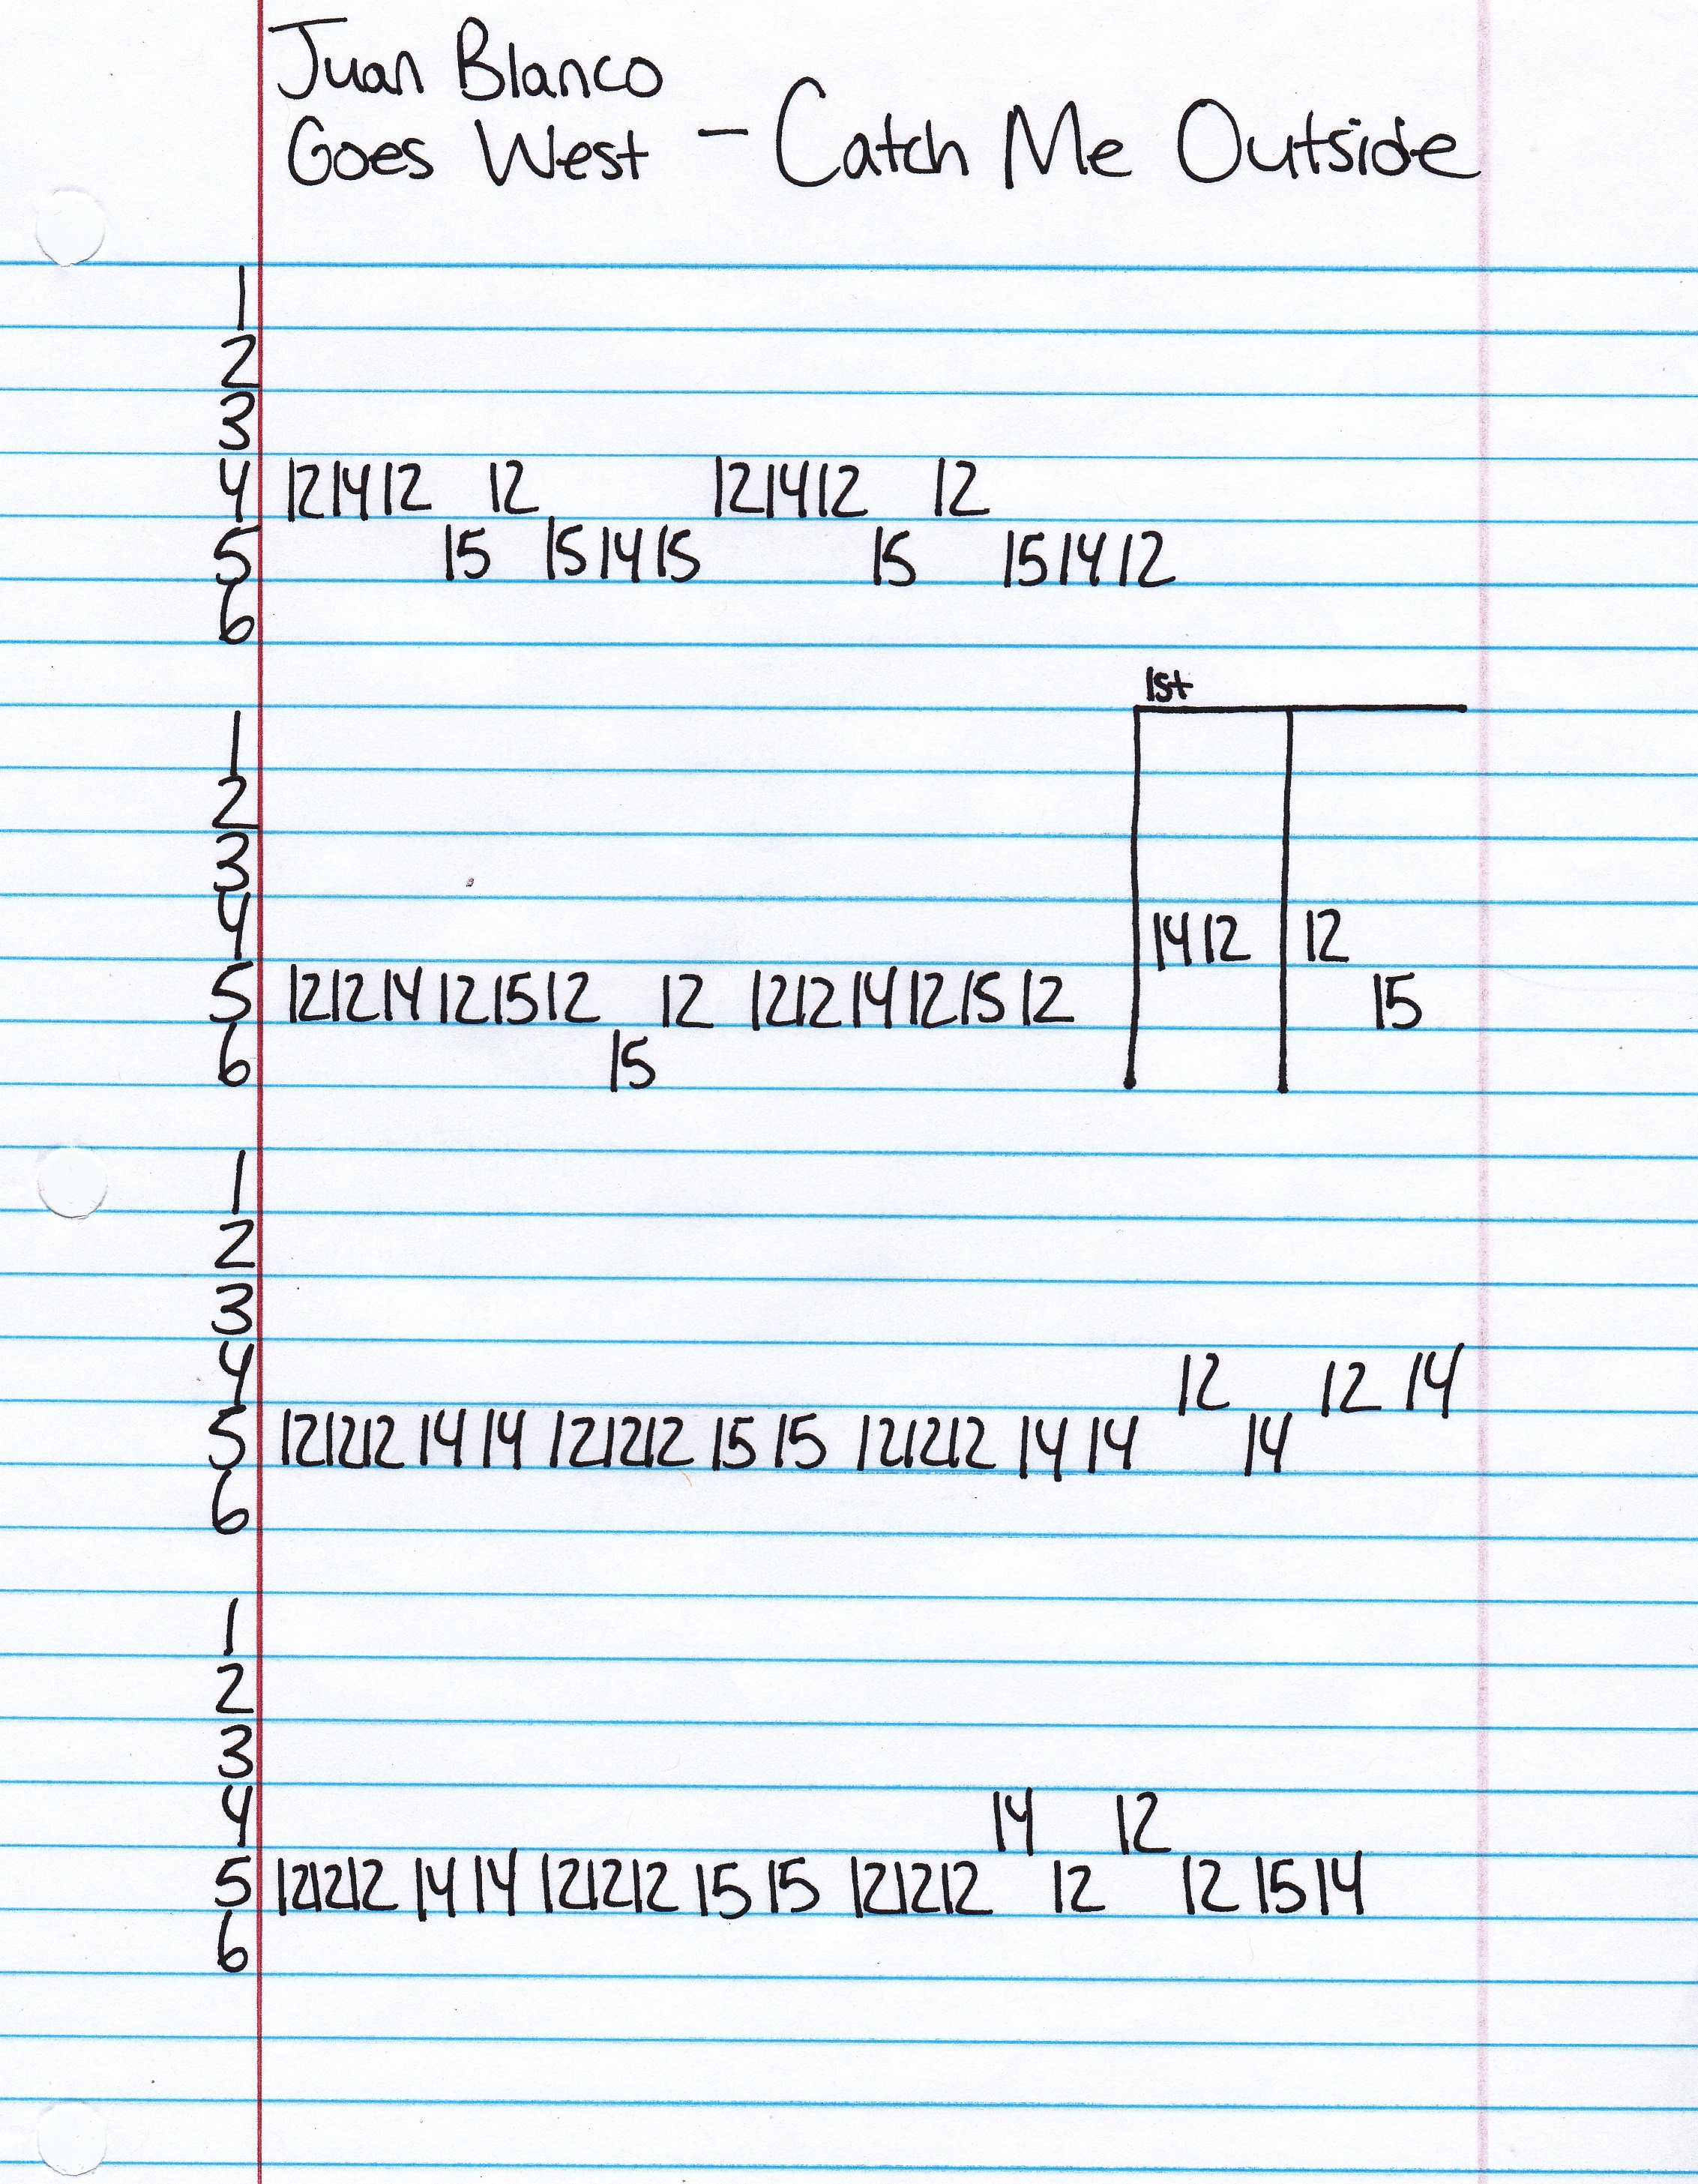 Juan Blanco
Goes West - Catch Me Outside
1
2
3
4 12 14 12 12 12 14 12 12
5 15 15 14 15 15 15 14 12
6
1st
1
2
3
4 14 12 12
5 12 12 14 12 15 12 12 12 12 14 12 15 12 15
6 15
1
2
3
4 12 12 14
5 12 12 12 14 14 12 12 12 15 15 12 12 12 14 14 14
6
1
2
3
4 14 12
5 12 12 12 14 14 12 12 12 15 15 12 12 12 12 12 15 14
6